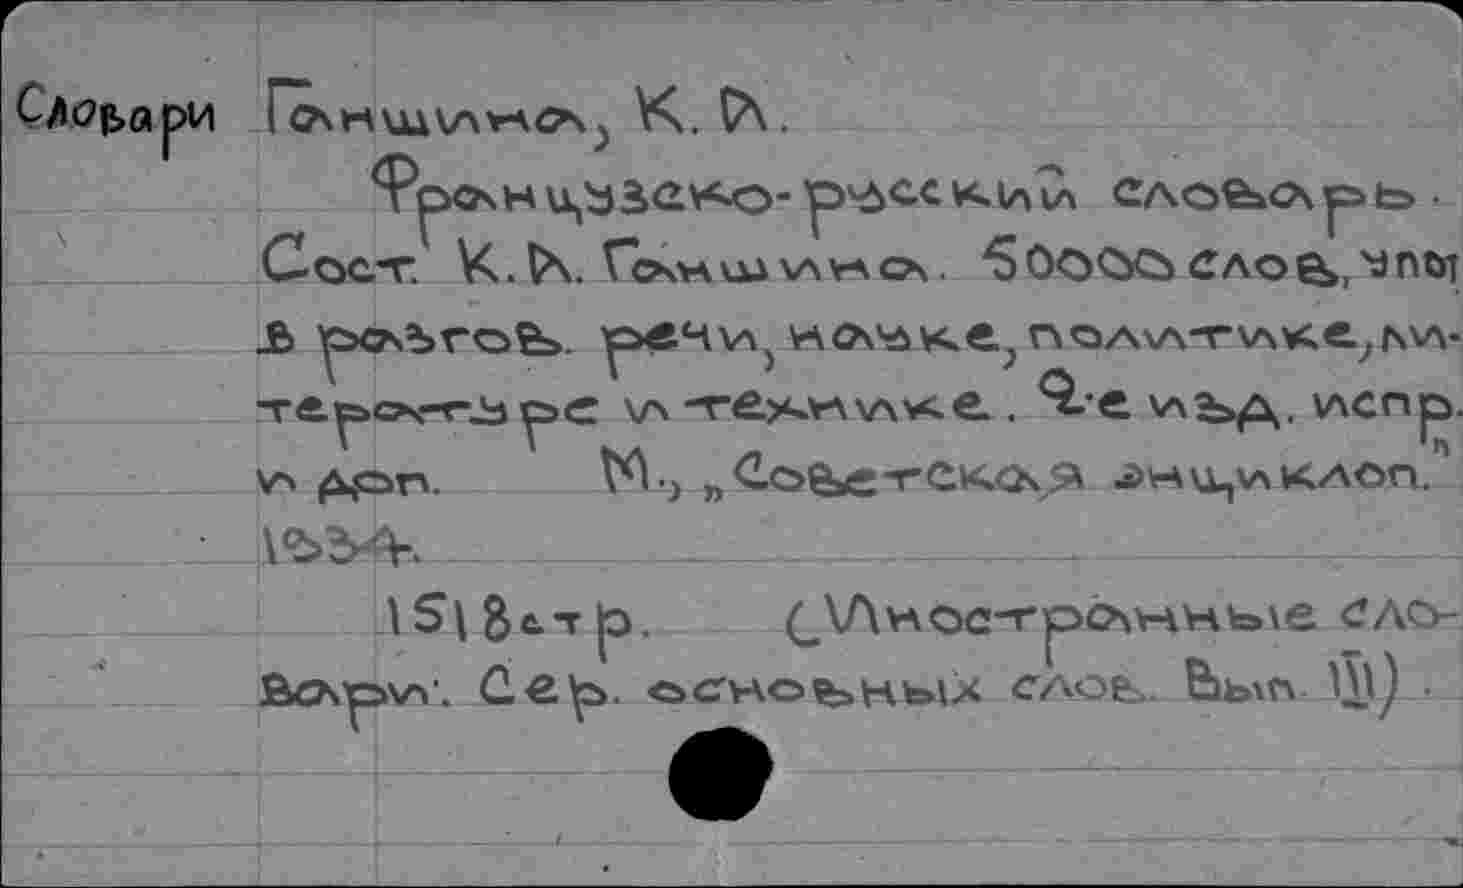 Словари Ганшина, К. А.
Французско-русский словарь.
Сост. К. А. Ганшина. 50000 слов, упот
в разгов. речи, науке, политике, ли-
тературе и технике. 2-е изд. испр.
и доп. М., „Советская энциклоп."
1934.
1518стр. (Иностранные сло-
вари. Сер. основных слов. Вып. III).